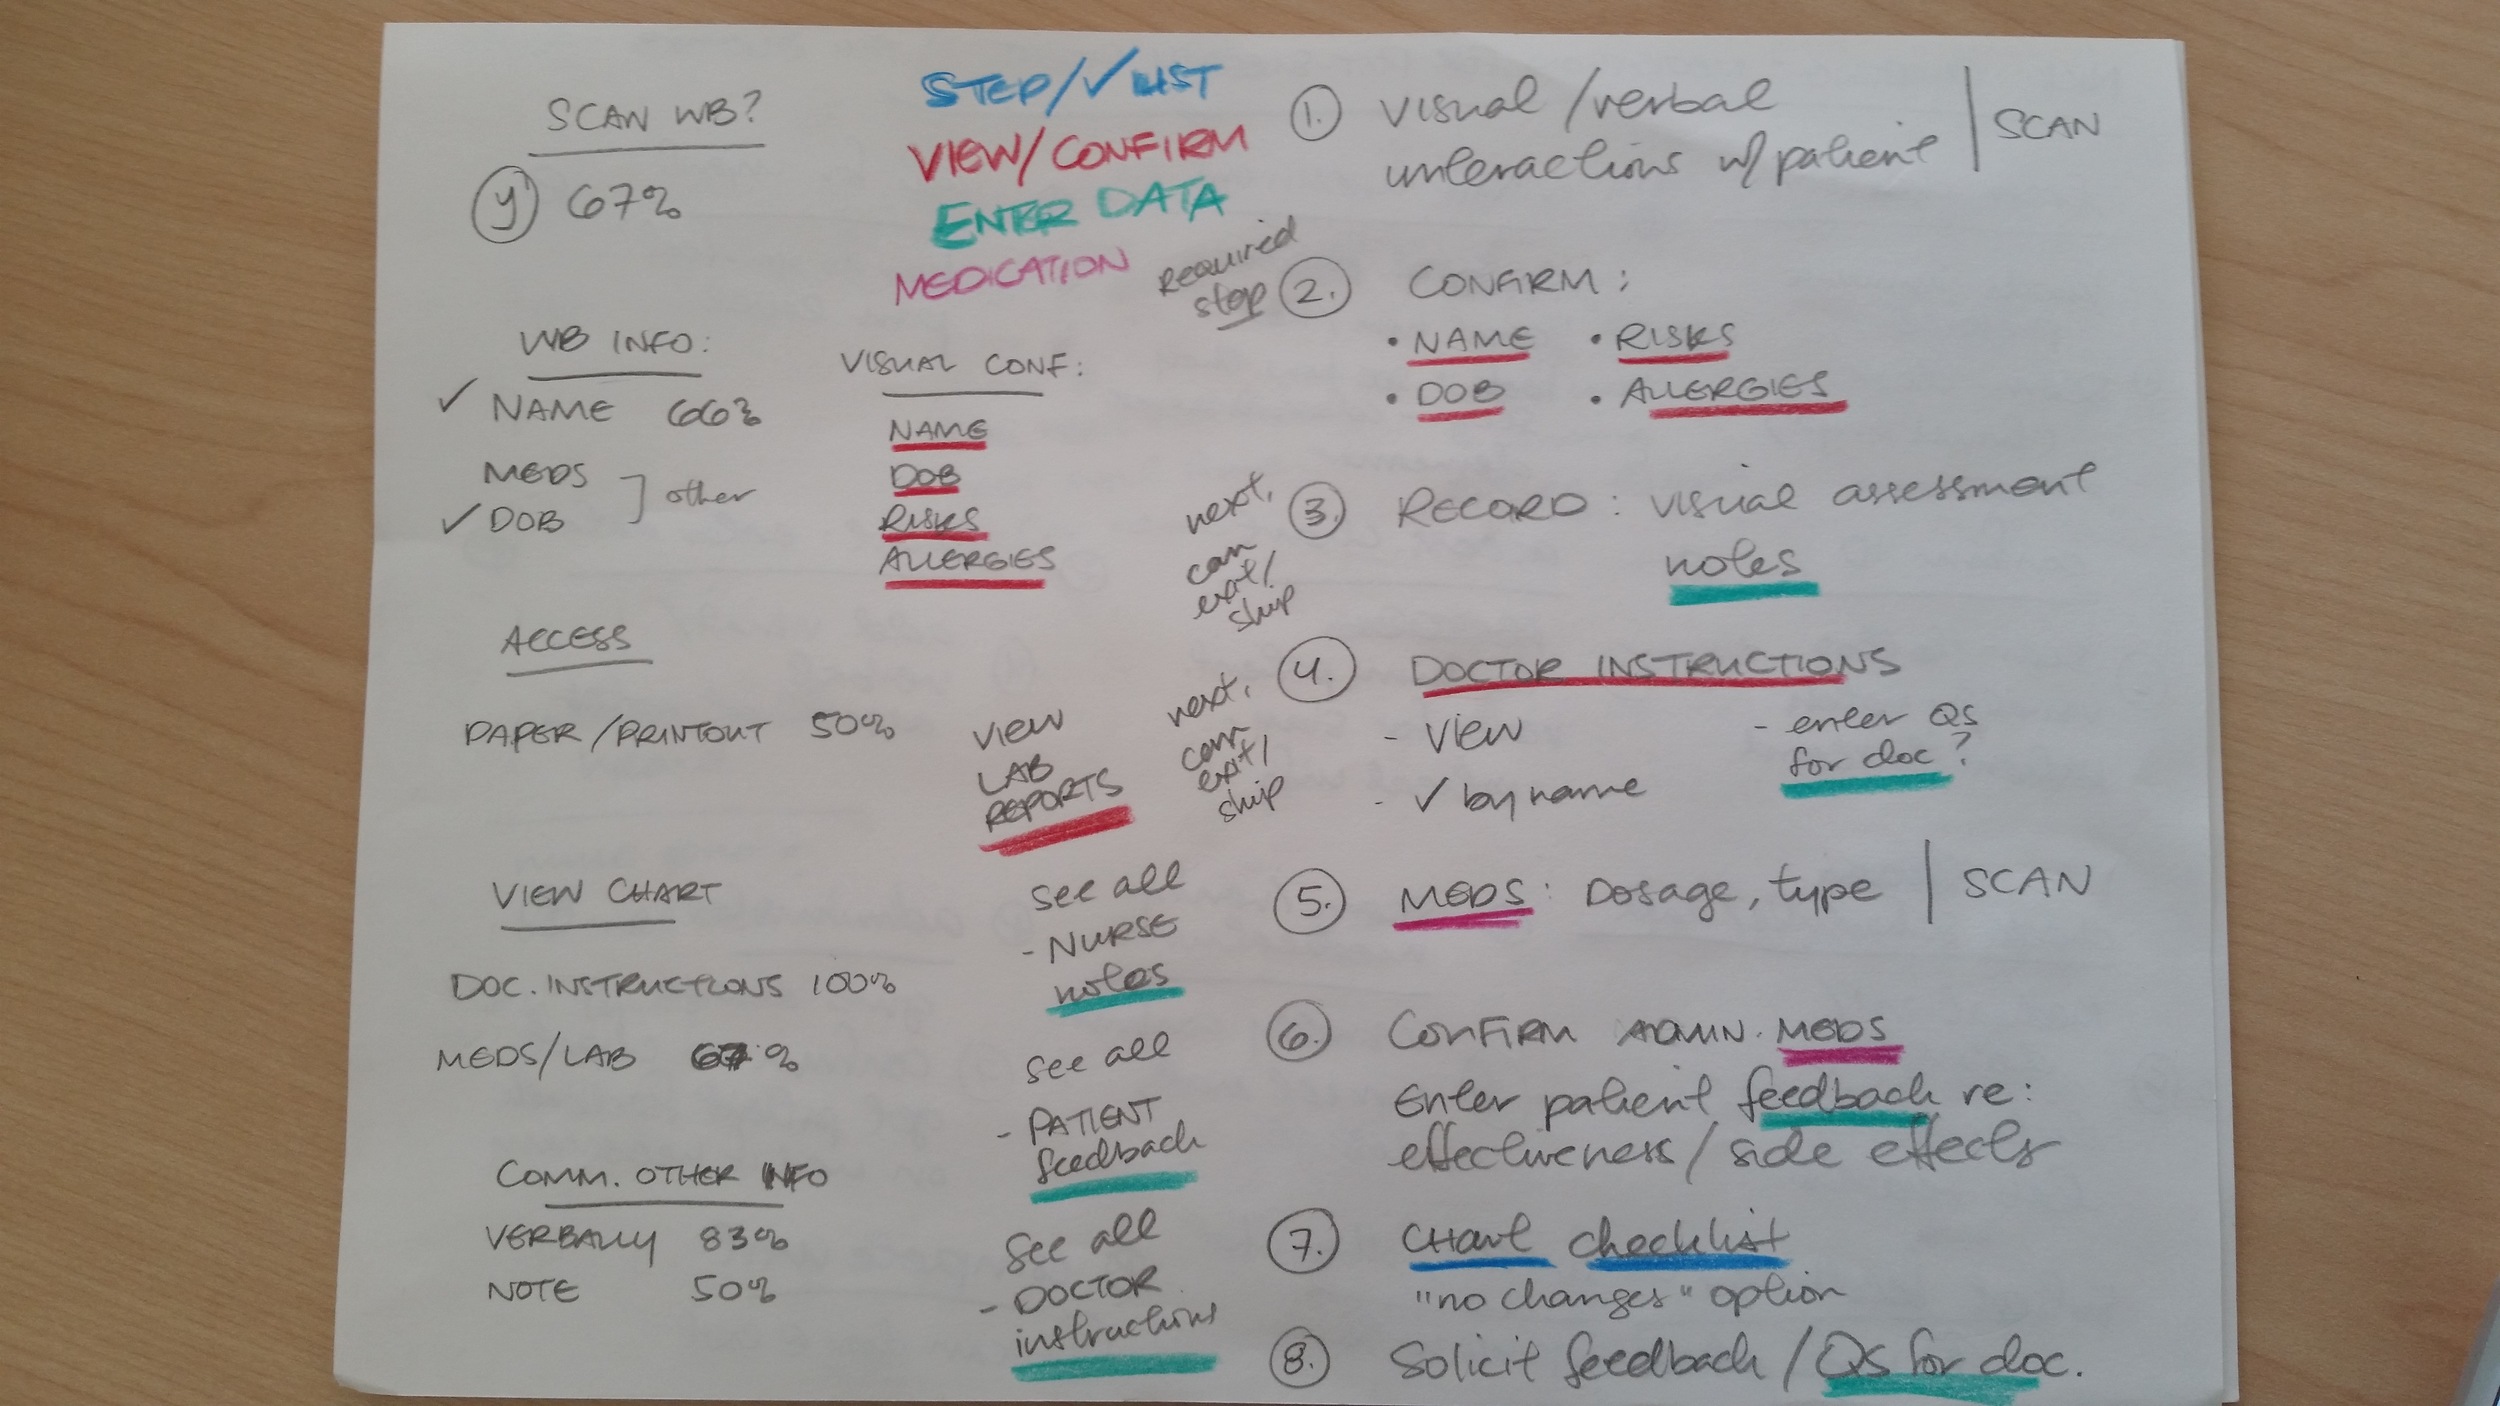 SCAN WB?
Y 67%
WB INFO:
✓ NAME 66%
MEDS
✓ DOB
] other
ACCESS
PAPER/PRINTOUT 50%
VIEW CHART
DOC. INSTRUCTIONS 100%
MEDS/LAB 67%
COMM. OTHER INFO
VERBALLY 83%
NOTE 50%
STEP/✓LIST
VIEW/CONFIRM
ENTER DATA
MEDICATION
VISUAL CONF:
NAME
DOB
RISKS
ALLERGIES
VIEW
LAB
REPORTS
see all
- NURSE
notes
see all
- PATIENT
feedback
see all
- DOCTOR
instructions
1. Visual/verbal
interactions w/ patient | SCAN
required
step
2. CONFIRM:
• NAME • RISKS
• DOB • ALLERGIES
next,
can
exit/
skip
3. RECORD: visual assessment
notes
next,
can
exit/
skip
4. DOCTOR INSTRUCTIONS
- VIEW
- ✓ by name
- enter Qs
for doc?
5. MEDS: Dosage, type | SCAN
6. CONFIRM ADMIN. MEDS
Enter patient feedback re:
effectiveness/side effects
7. CHART checklist
"no changes" option
8. Solicit feedback/Qs for doc.